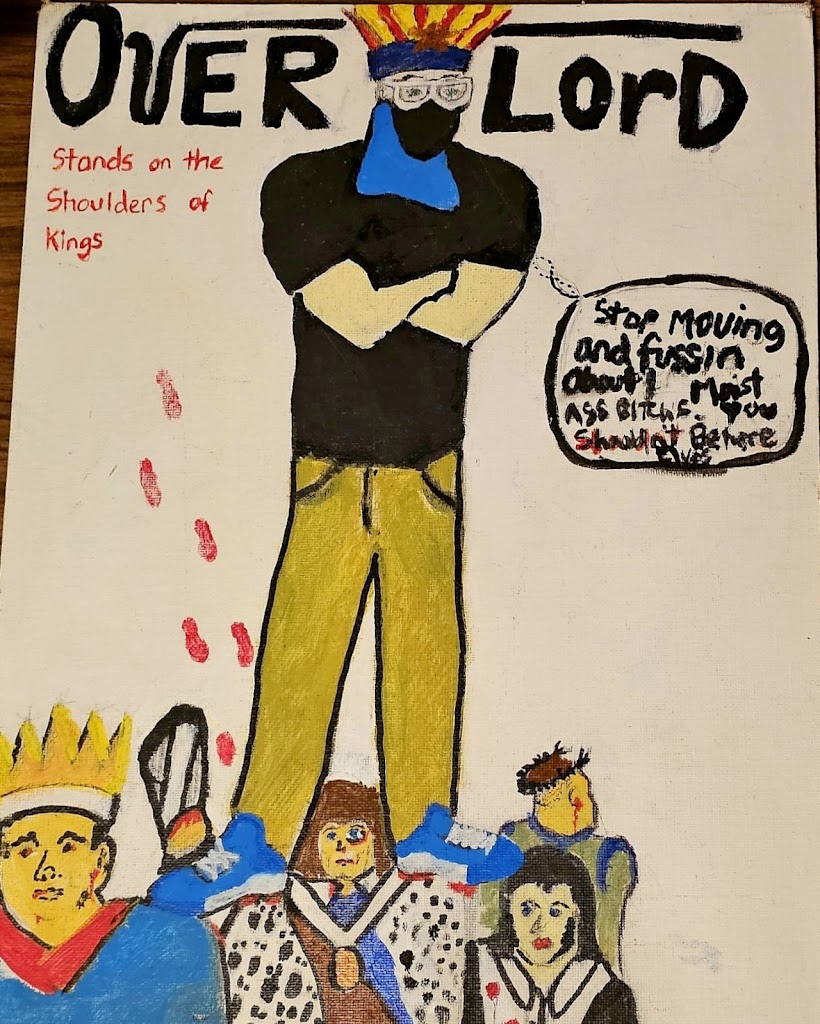 OVER LorD
Stands on the
Shoulders of
Kings
Stop Moving
and fussin
About! Moist
Ass Bitchs. You
Shouldn't Be here